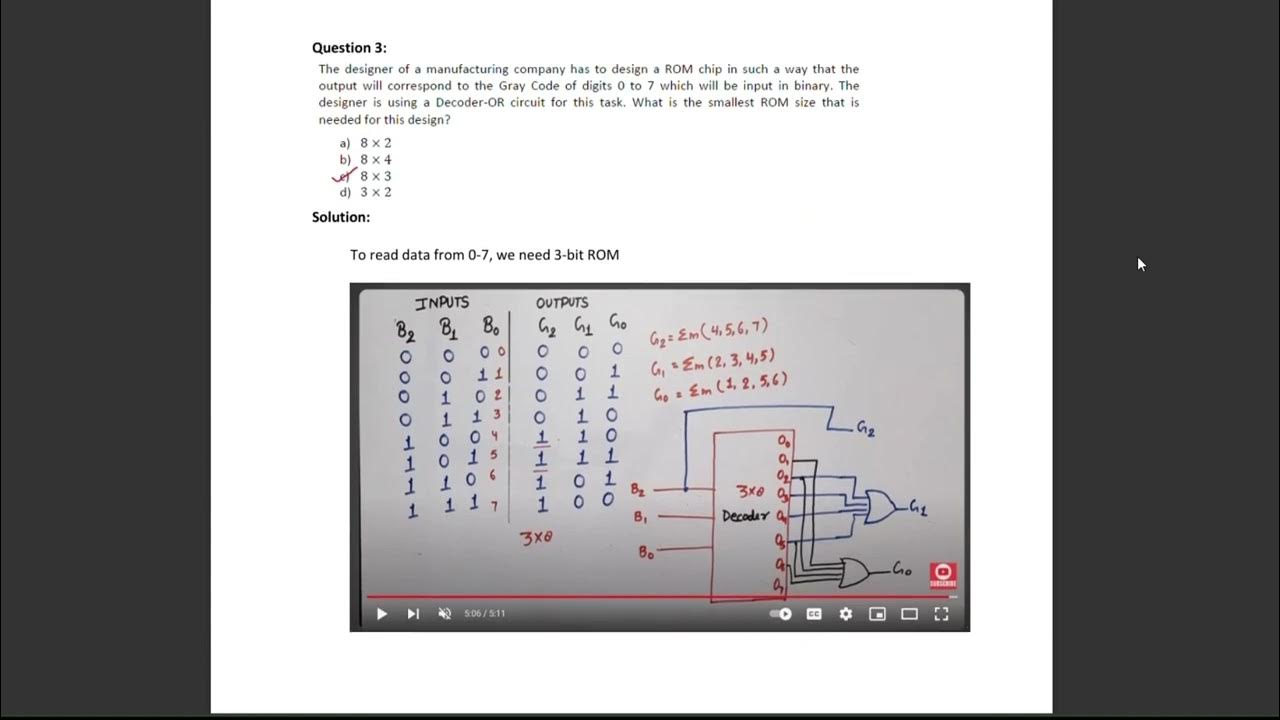 Question 3:
The designer of a manufacturing company has to design a ROM chip in such a way that the
output will correspond to the Gray Code of digits 0 to 7 which will be input in binary. The
designer is using a Decoder-OR circuit for this task. What is the smallest ROM size that is
needed for this design?
a) 8 × 2
b) 8 × 4
c) 8 × 3
d) 3 × 2
Solution:
To read data from 0-7, we need 3-bit ROM
INPUTS OUTPUTS
B2 B1 B0 G2 G1 G0
0 0 0 0 0 0 0
0 0 1 1 0 0 1
0 1 0 2 0 1 1
0 1 1 3 0 1 0
1 0 0 4 1 1 0
1 0 1 5 1 1 1
1 1 0 6 1 0 1
1 1 1 7 1 0 0
3x8
G2 = Σm(4,5,6,7)
G1 = Σm(2,3,4,5)
G0 = Σm(1,2,5,6)
G2
B2
B1
B0
3x8
Decoder
O0
O1
O2
O3
O4
O5
O6
O7
G1
G0
SUBSCRIBE
5:06 / 5:11
CC